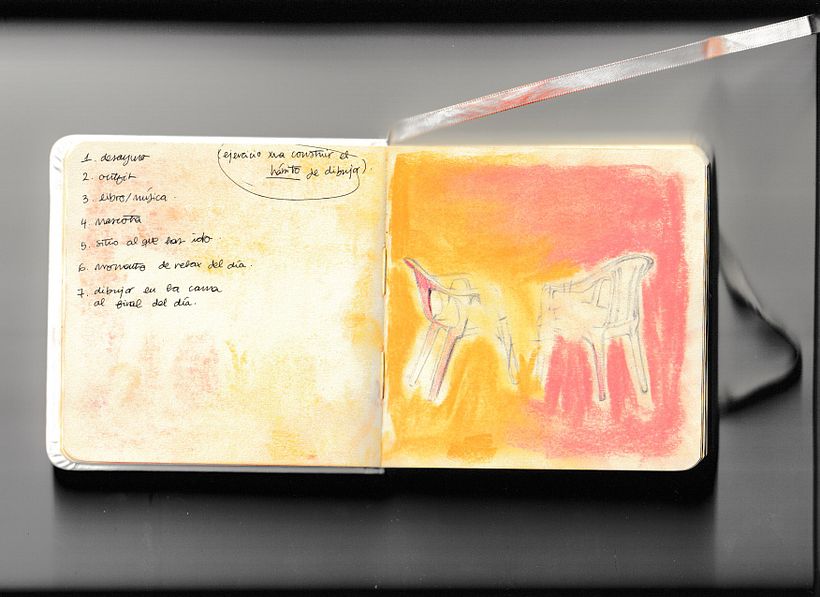 1. desayuno
2. outfit
3. libro/música.
4. mascota
5. sitio al que has ido.
6. momento de relax del día.
7. dibujar en la cama
al final del día.
(ejercicio xra construir el
hábito de dibujar).